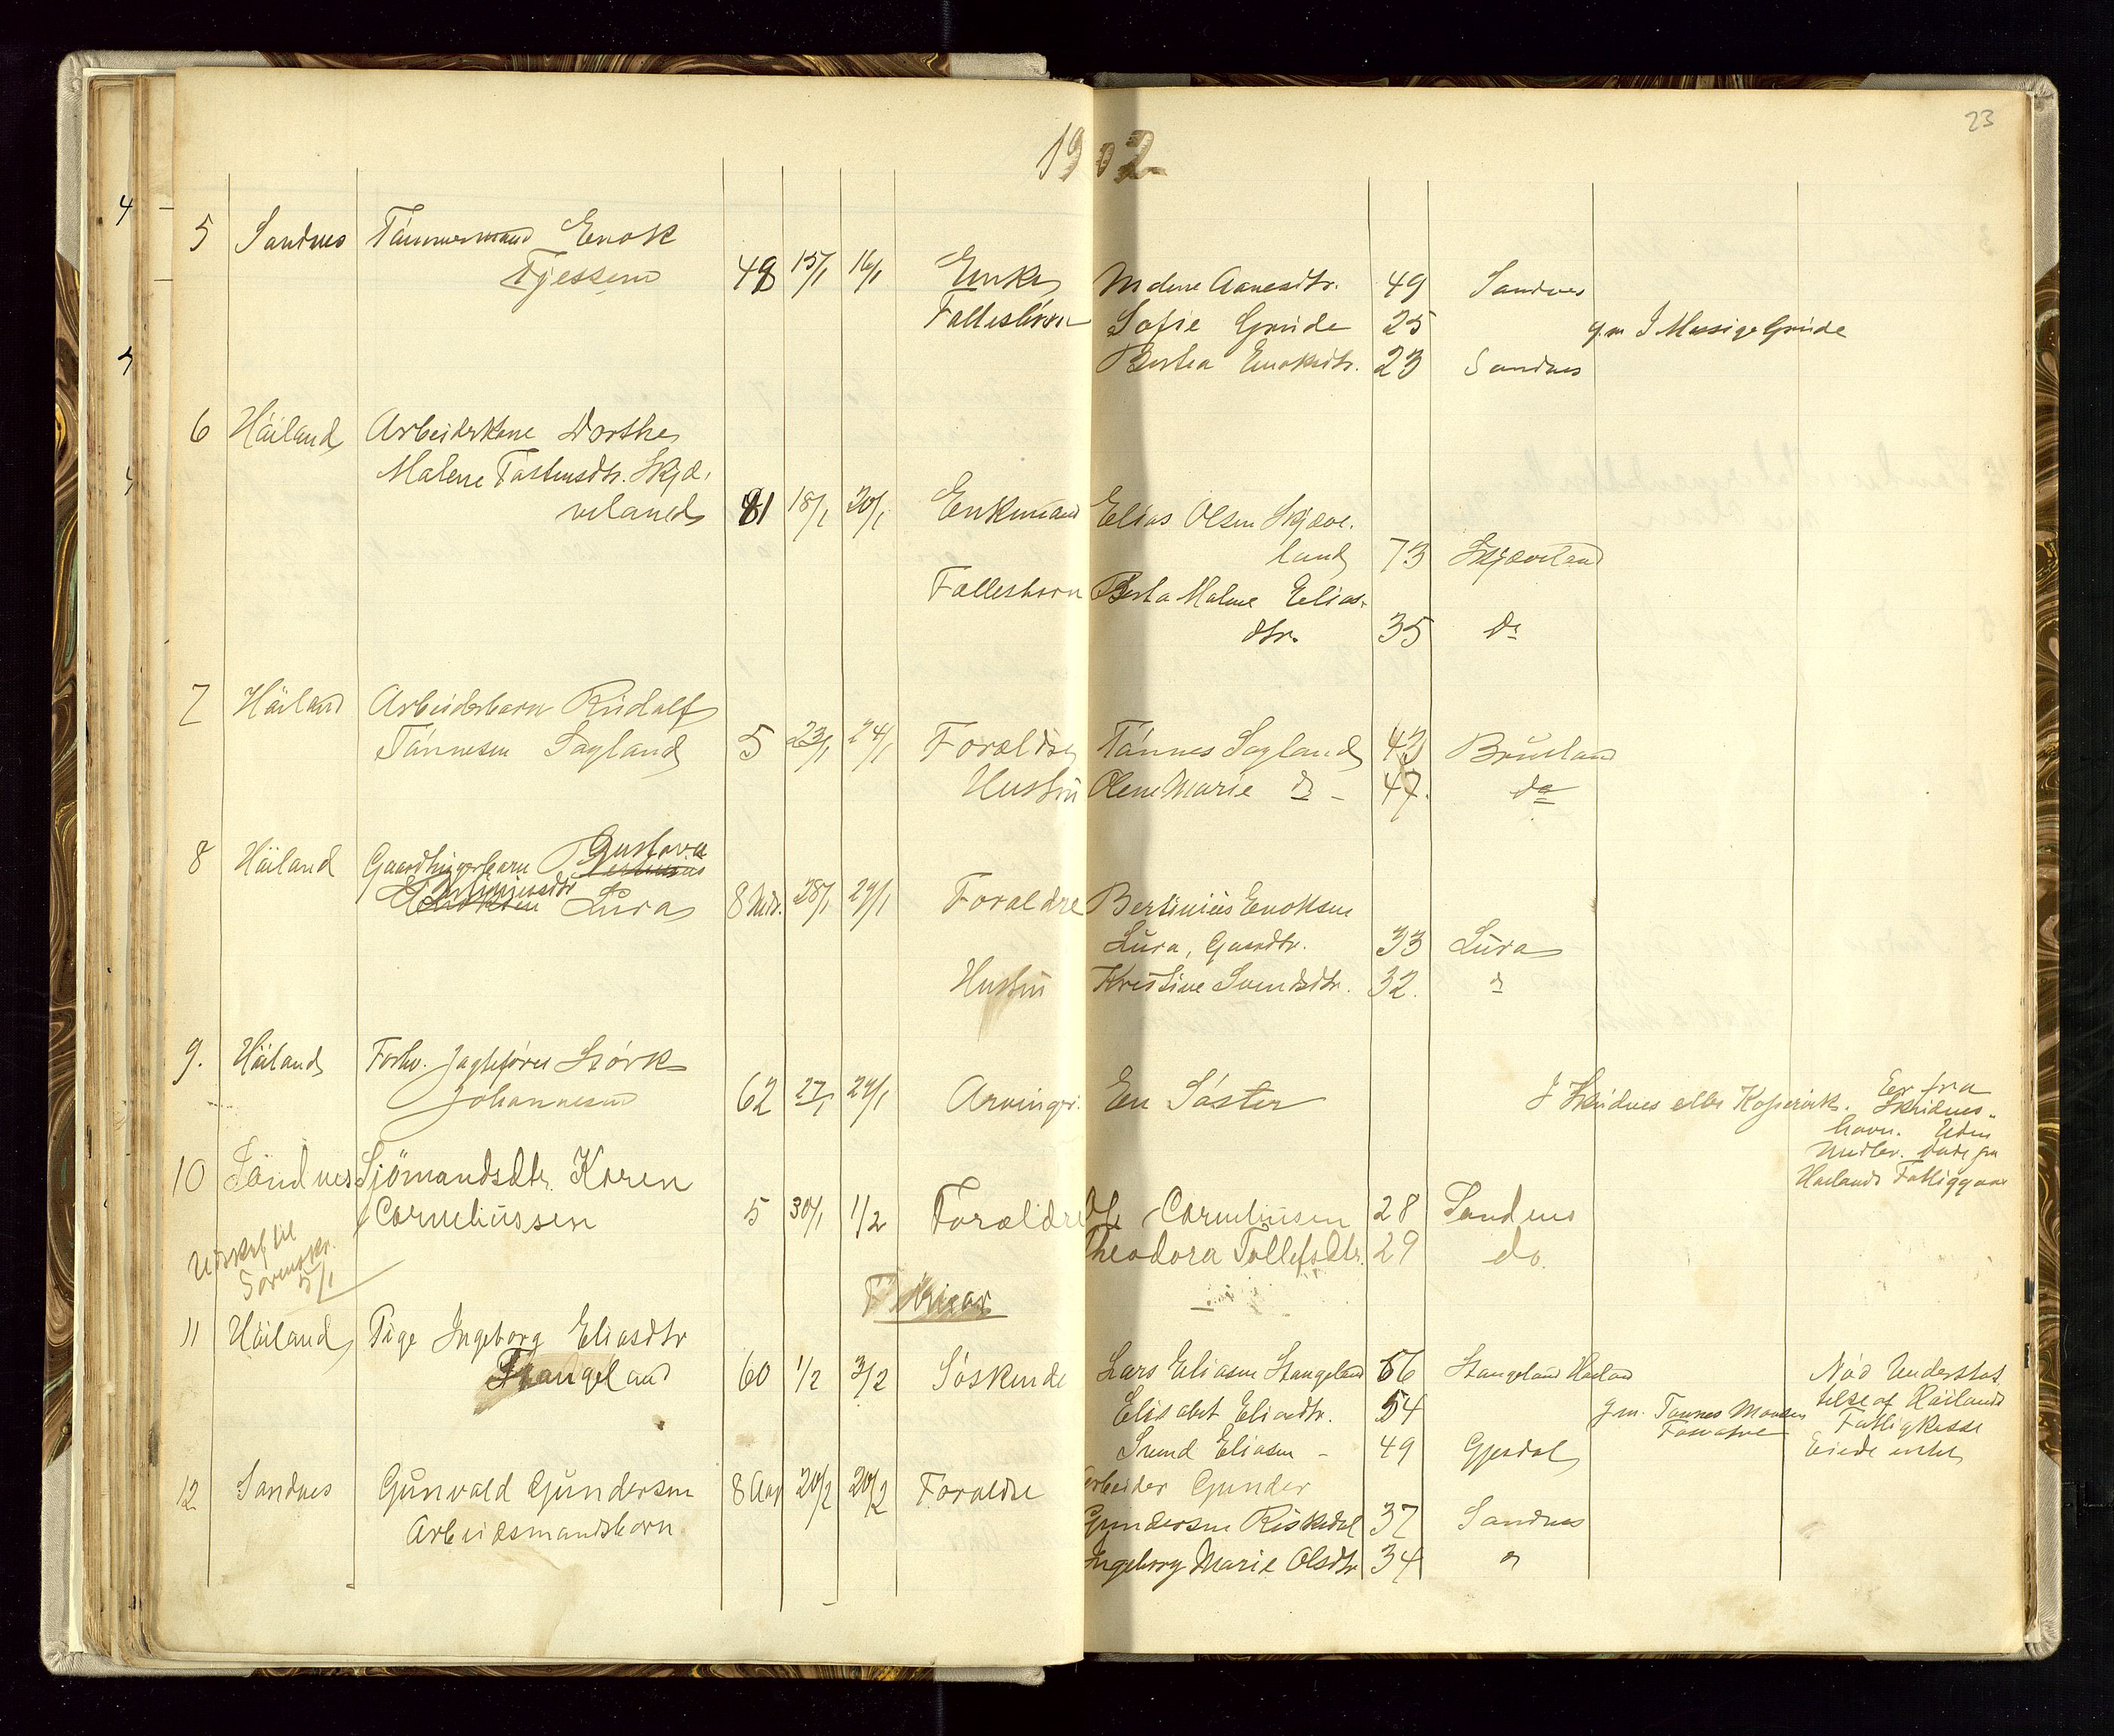 23
1902
5 Sandnes Tømmermand Enok
Tjessem 48 15/1 16/1 Enke Malene Aanesdtr. 49 Sandnes
Fællesbørn Sofie Grude 25 g.m. I Massige Grude
Bertea Enoksdtr. 23 Sandnes
6 Høiland Arbeiderkone Dorthe
Malene Tostensdtr. Skjæ-
veland 81 18/1 20/1 Enkemand Elias Olsen Skjæve-
land 73 Skjæveland
Fællesbarn Berta Malene Elias-
dtr. 35 do
7 Høiland Arbeiderbarn Rudolf
Tønnesen Sagland 5 23/1 24/1 Forældre Tønnes Sagland 43 Brueland
Hustru Olene Marie do - 47. do
8 Høiland Gaardbrugerbarn Gustava
Bertiniusdtr Lura 8 Mdr. 28/1 29/1 Forældre Bertinius Enoksen
Lura, Gaardbr. 33 Lura
Hustru Kristine Svendsdtr. 32. "
9. Høiland Forhv. Jagtefører Størk
Johannesen 62 27/1 29/1 Arvinger: En Søster I Skudnes eller Kopervik. Er fra
Skudnes-
havn. Uden
Midler. Døde paa
Høilands Fattiggaar
10 Sandnes Sjömandsdtr. Karen
Corneliussen 5 30/1 1/2 Forældre Ole Corneliusen 28 Sandnes
Theodora Tollefsdtr. 29 do.
Udskrift til
Sorenskr.
5/1
Februar
11 Høiland Pige Ingeborg Eliasdtr
Stangeland 60 1/2 3/2 Søskende Lars Eliasen Stangeland 66 Stangeland Høiland Nød Understøt-
telse af Høilands
Elisabet Eliasdtr. 54 g.m. Tønnes Monsen Fattigkasse
Svend Eliasen - 49 Gjesdal Eiede intet
12 Sandnes Gunvald Gundersen 8 Aar 20/2 20/2 Forældre Arbeider Gunder
Arbeidsmandsbarn Gundersen Riskedal 37 Sandnes
Ingeborg Marie Olsdtr 34 "